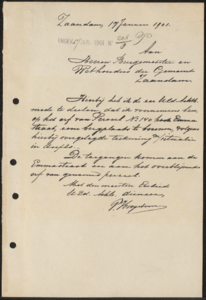 Zaandam, 17 Januari 1901.
Aan
Heeren Burgemeester en
Wethouders der Gemeente
Zaandam
Hierbij heb ik de eer UEd. Achtb.
mede te deelen dat ik voornemens ben
op het erf van Perceel No 140 hoek Emma
straat, een bergplaats te bouwen, volgens
hierbij overgelegde teekening en situatie
in duplo.
De toegangen komen aan de
Emmastraat en aan het overblijvende
erf van genoemd perceel.
Met den meesten Eerbied
UEd. Achtb. dienaar